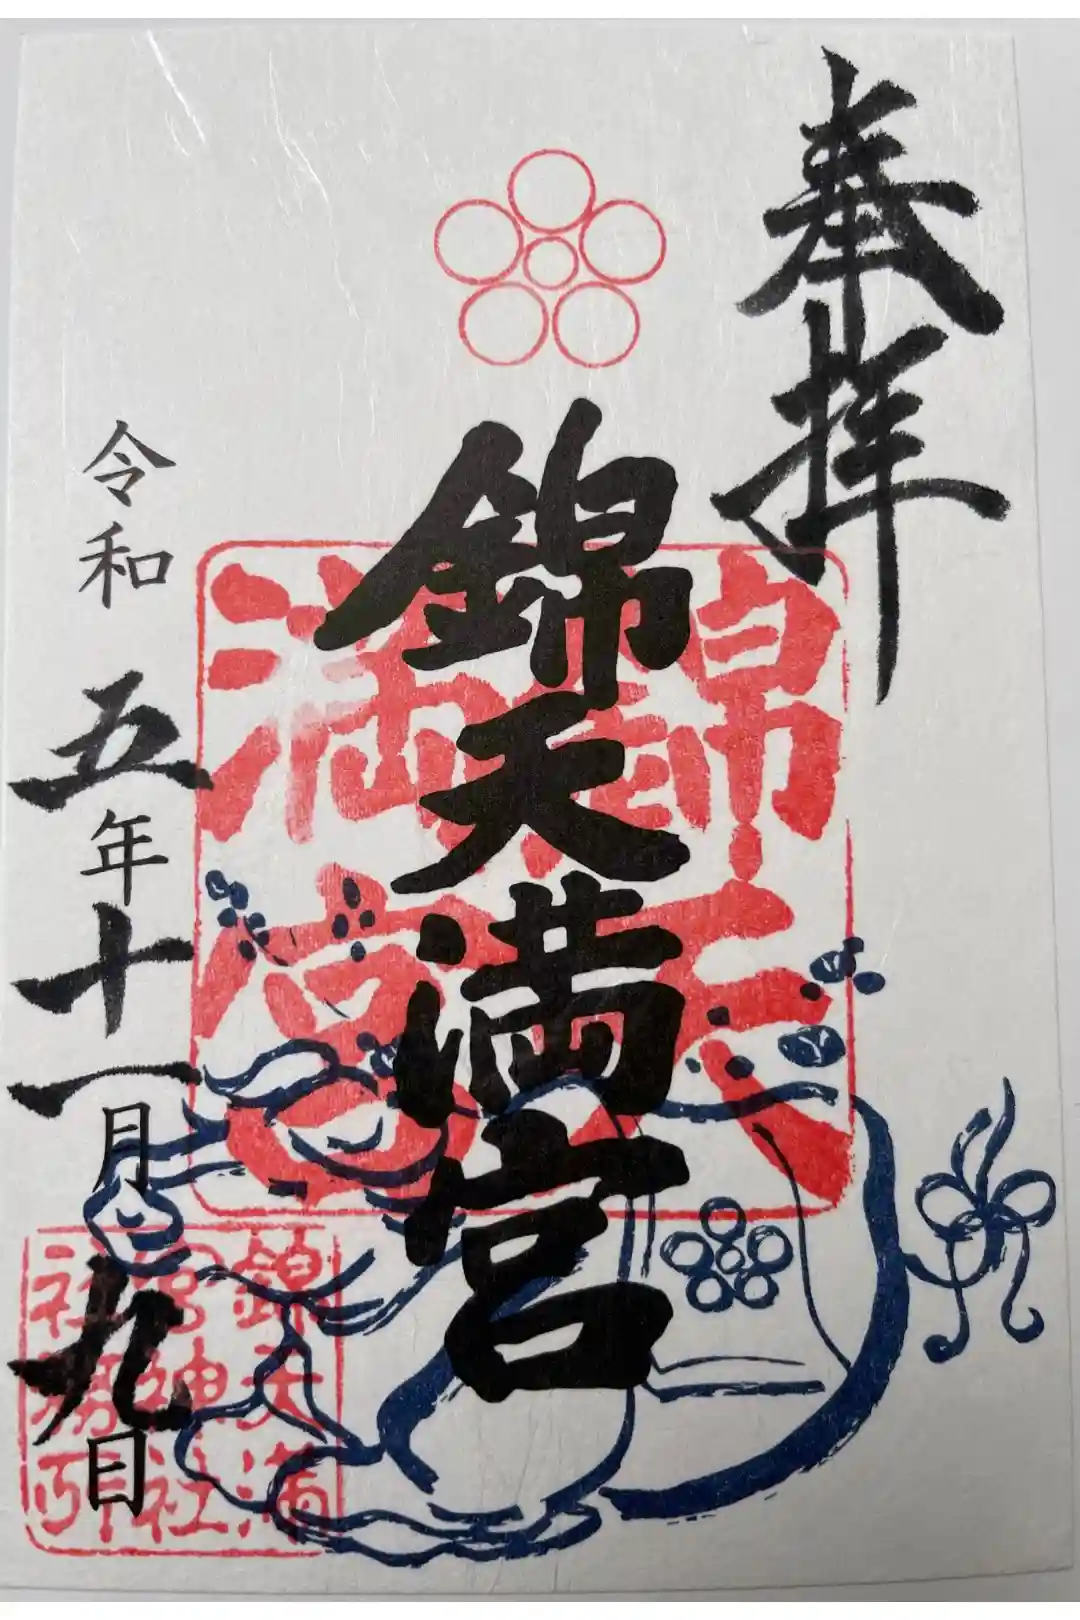 奉拝
錦天満宮
錦天
満宮
令和五年十一月九日
錦天満
宮神社
社務所